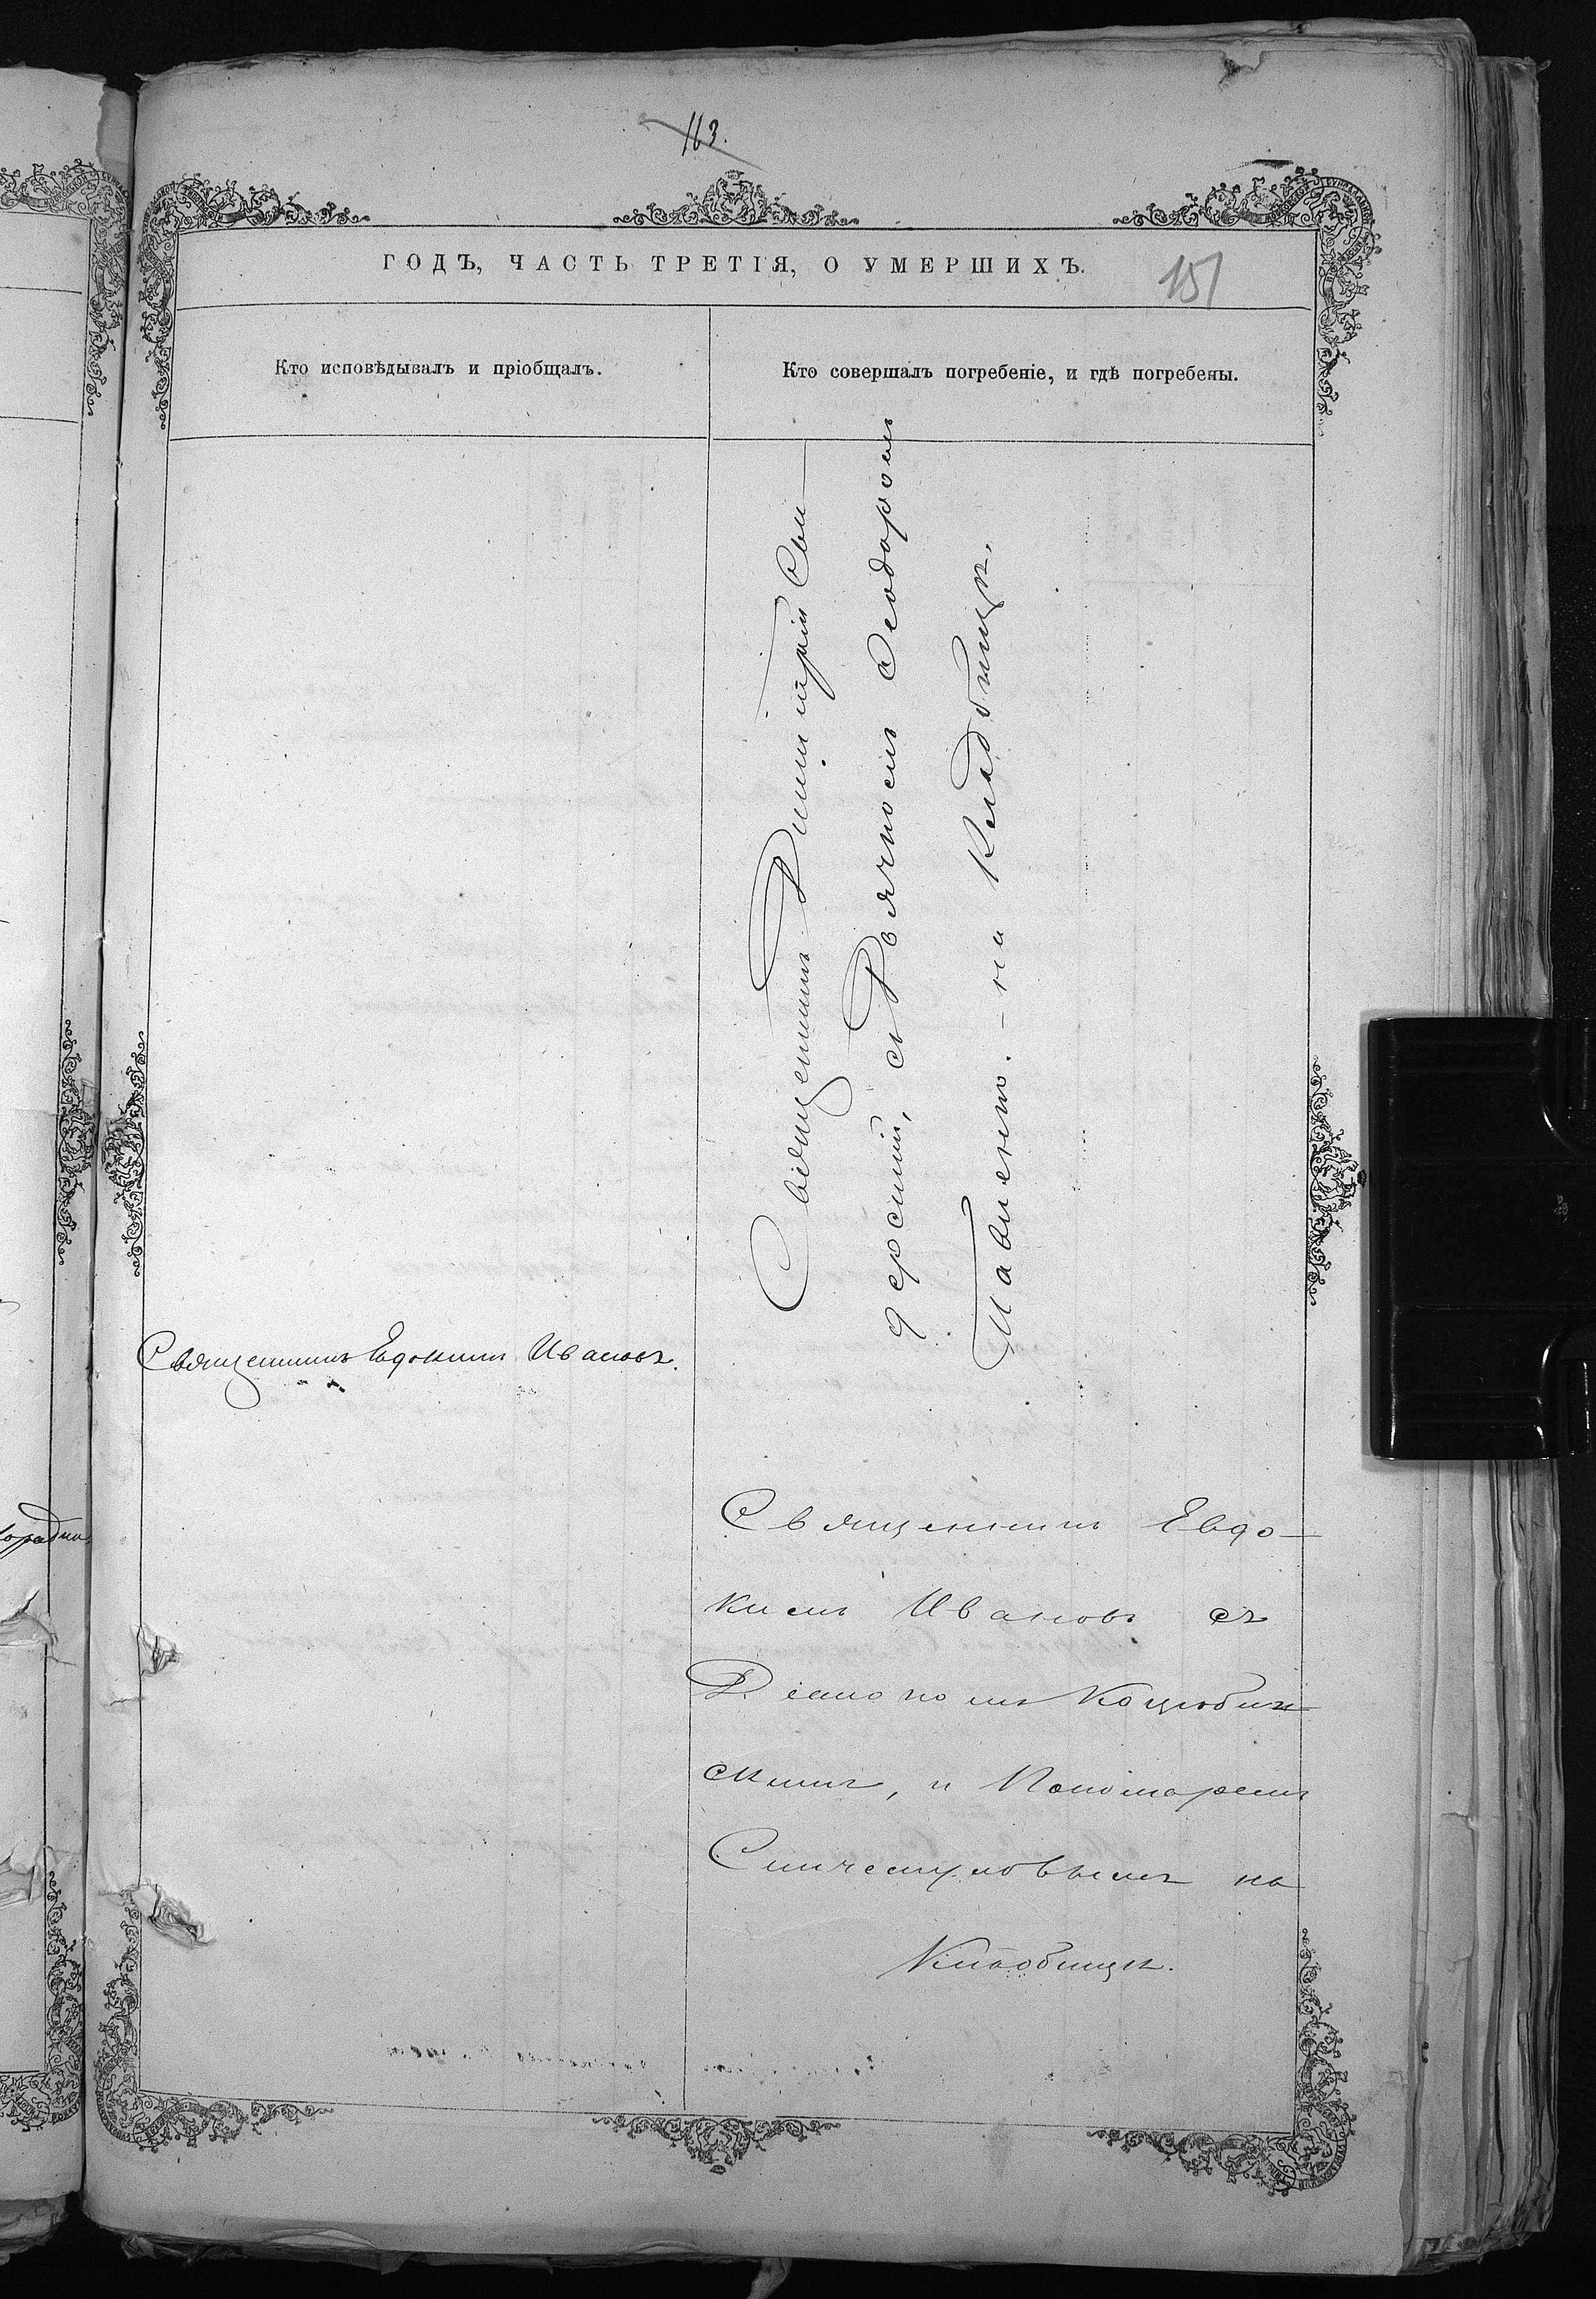 113.
ГОДЪ, ЧАСТЬ ТРЕТІЯ, О УМЕРШИХЪ.
151
Кто исповѣдывалъ и пріобщалъ.
Кто совершалъ погребеніе, и гдѣ погребены.
Священникъ Димитрій
съ Дьячкомъ Ѳеодоромъ
на Кладбищѣ.
Священникъ Евдокимъ Ивановъ.
Священникъ Евдо-
кимъ Ивановъ съ
Дьячкомъ Коцюбин-
скимъ, и Пономаремъ
на
Кладбищѣ.